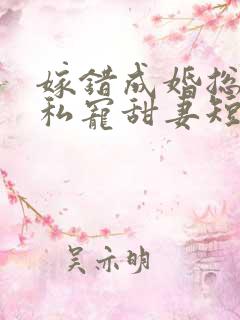 嫁错成婚总
私宠甜妻短
吴亦明